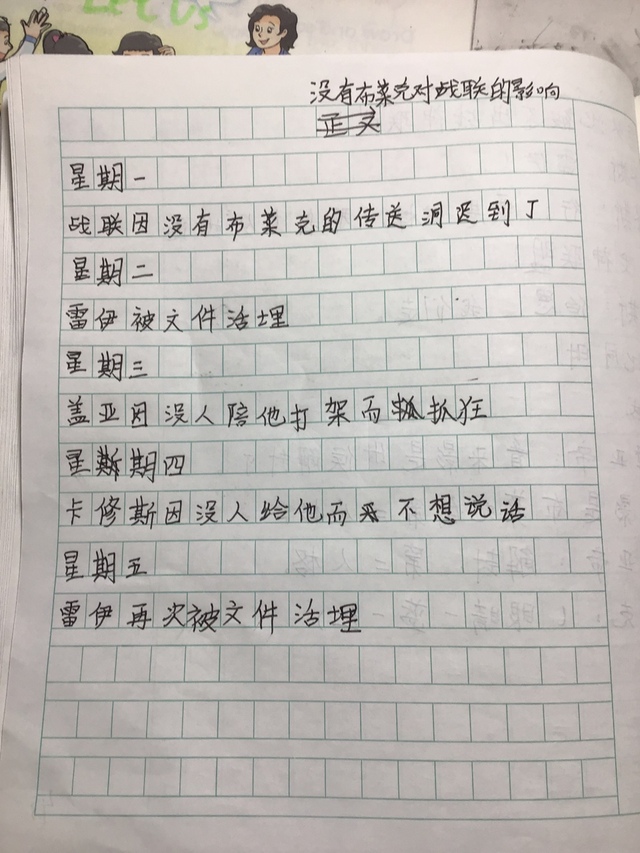 没有布莱克对战联的影响
正文
星期一
战联因没有布莱克的传送洞迟到了
星期二
雷伊被文件活埋
星期三
盖亚因没人陪他打架而抓狂
星期四
卡修斯因没人给他而不想说话
星期五
雷伊再次被文件活埋